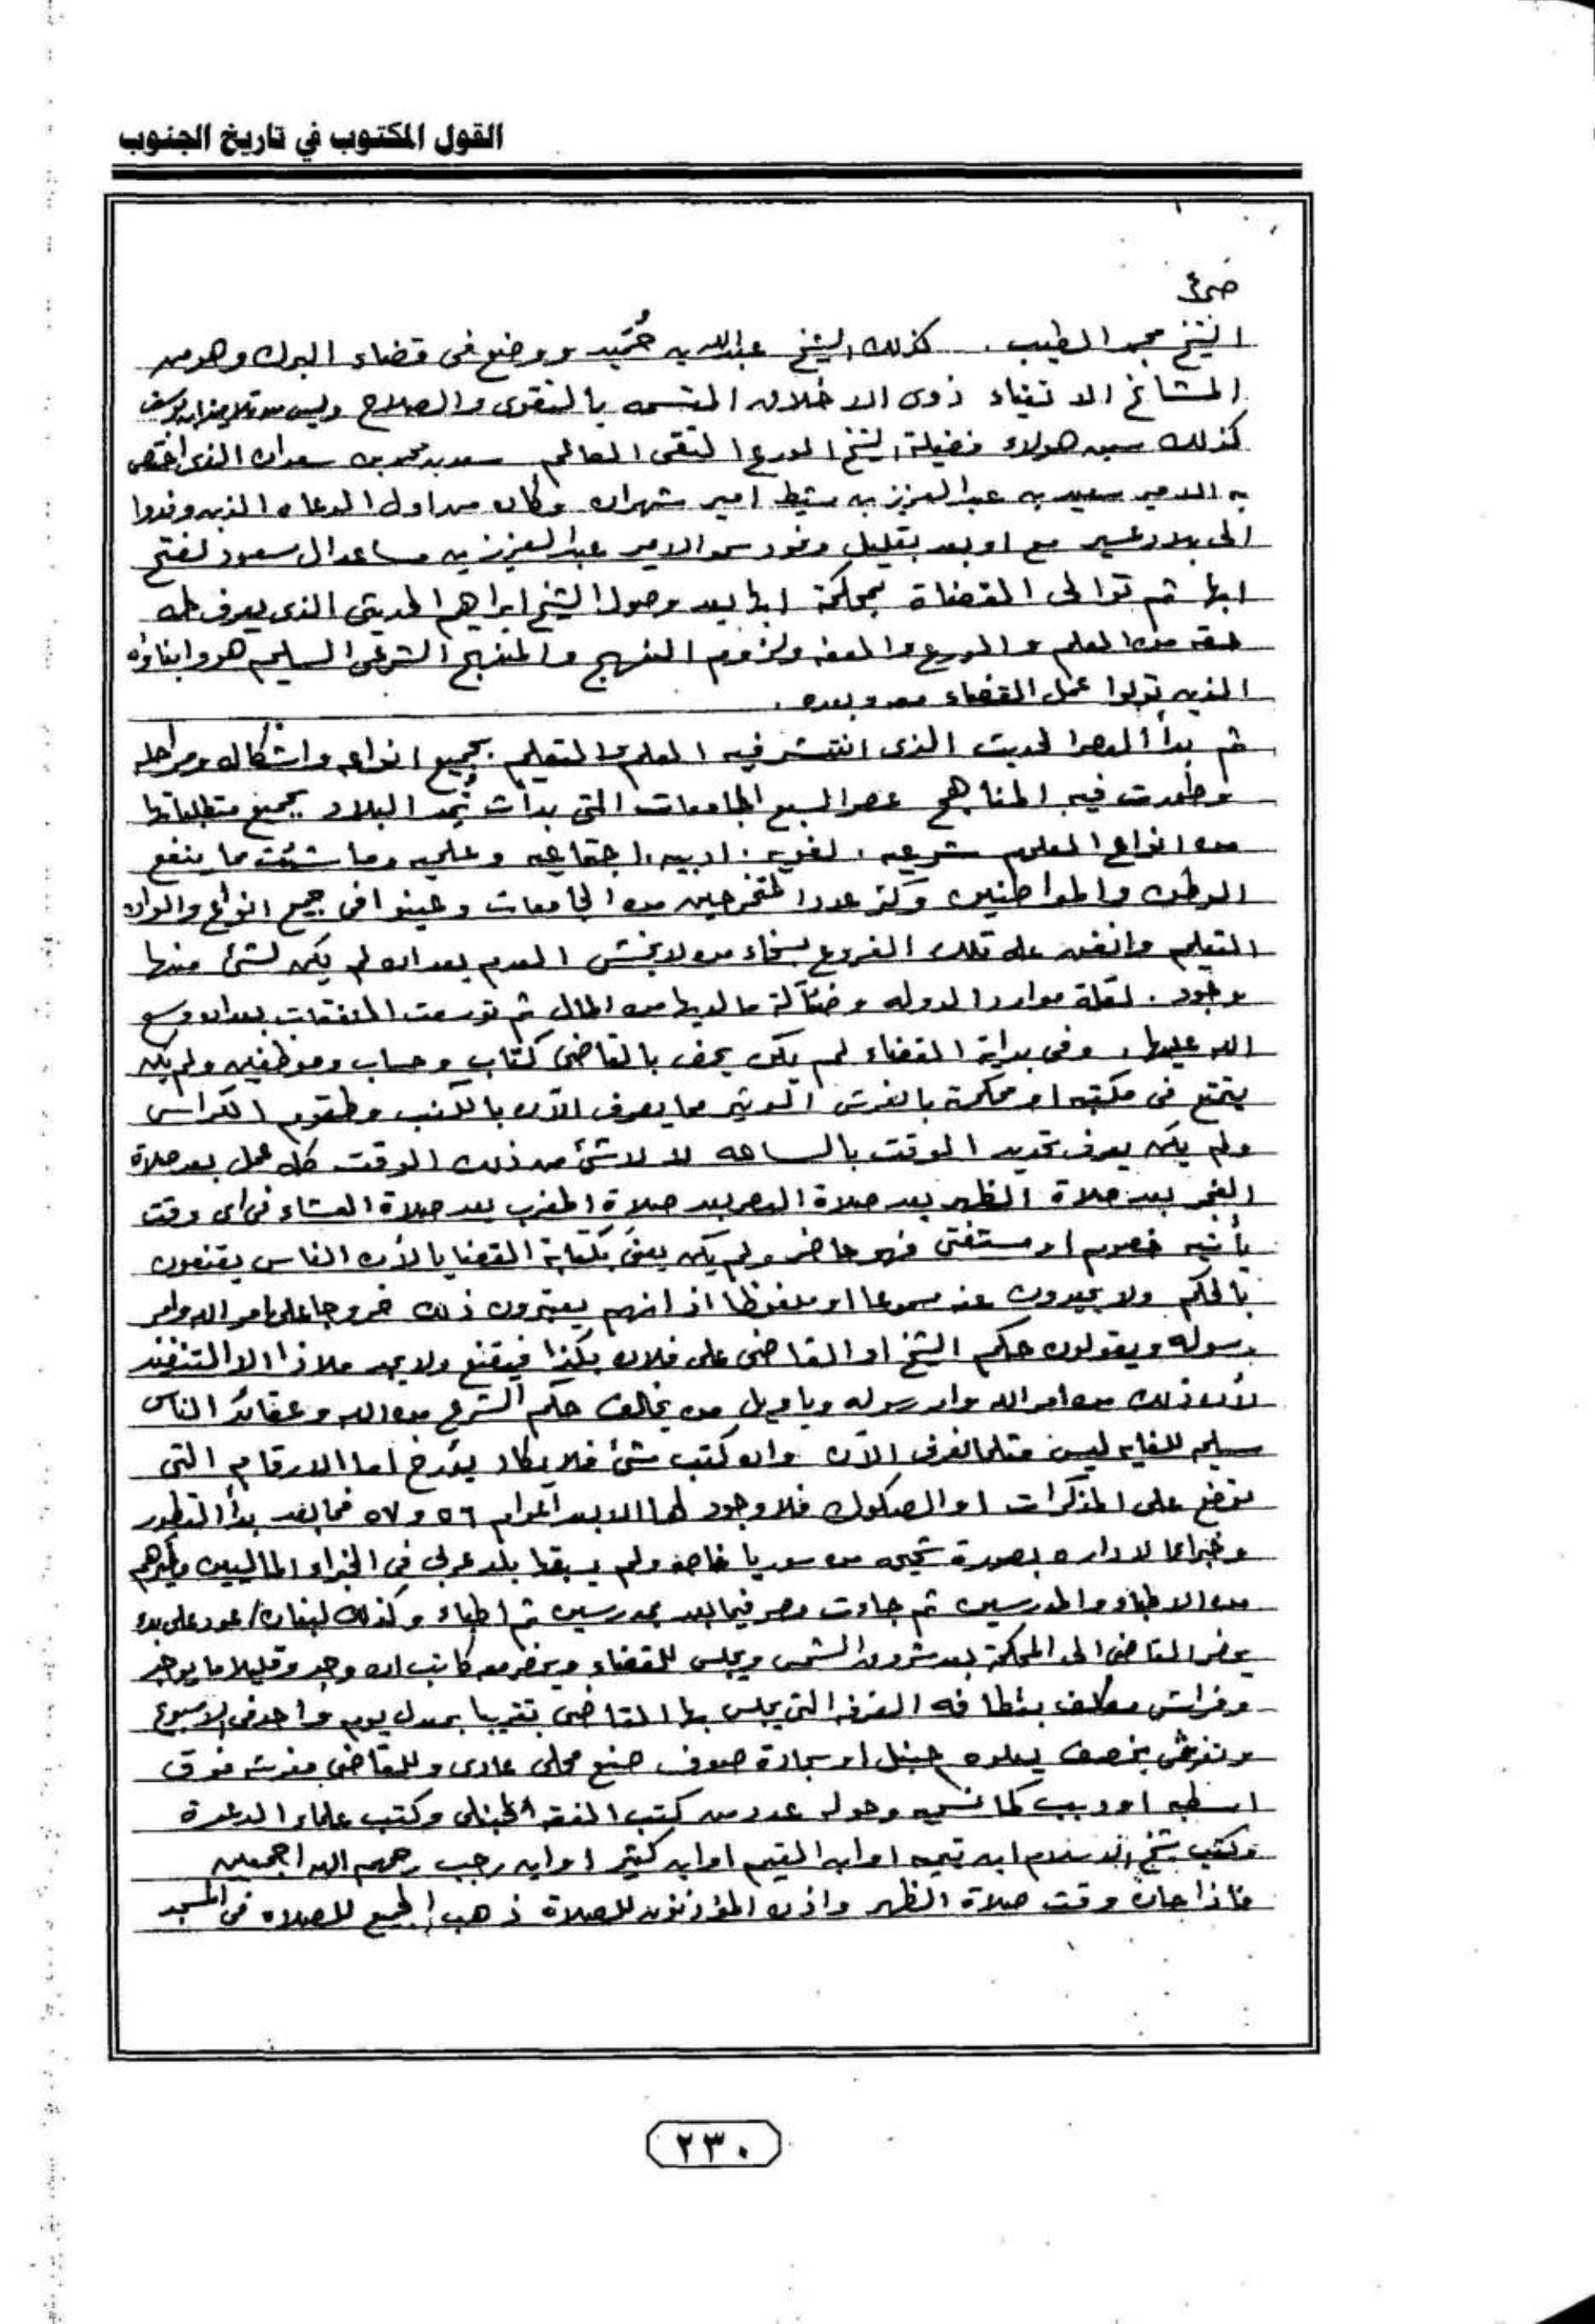 القول المكتوب في تاريخ الجنوب
ص٤
الشيخ محمد الطيب. كذلك الشيخ عبدالله بن حُمَيد ووضع فى قضاء البرك وهو من
المشائخ الاتقياء ذوى الاخلاق المتسمه بالتقوى والصلاح وليس من تلاميذ ابن يوسف
كذلك سبق هولاء فضيلة الشيخ الورع التقى العالم سعد بن محمد بن سعدان الذى اختص
به الامير سعيد بن عبدالعزيز بن مشيط امير شهران وكان من اول الدعاه الذين وفدوا
الى بلاد عسير مع او بعد بقليل وفود سمو الامير عبدالعزيز بن مساعد ال سعود لفتح
ابها ثم توالى القضاة بمحكمة ابها بعد وصول الشيخ ابراهيم الحديثى الذى يعرف
حقه من العلم والورع والعفه ولزوم النهج والمنهج الشرعى السليم هو وابناؤه
الذين تولوا عمل القضاء معه وبعده.
ثم بدأ العصر الحديث الذى انتشر فيه العلم والتعليم بجميع انواعه واشكاله ومراحله
وطورت فيه المناهج عصر السبع الجامعات التى بدأت تُمِد البلاد بجميع متطلباتها
من انواع العلوم شرعيه. لغويه. ادبيه. اجتماعيه وعلميه وما شئت مما ينفع
الوطن والمواطنين وكثر عدد المتخرجين من الجامعات وعينوا فى جميع انواع والوان
التعليم وانفق على تلك الفروع بسخاء من لا يخشى العدم بعد ان لم يكن لشئ منها
وجود. لقلة موارد الدوله وضآلة ما لديها من المال ثم توسعت النفقات بعد ان وسع
الله عليها. وفى بداية القضاء لم يكن يحف بالقاضى كتاب وحساب وموظفين ولم يكن
يتمتع فى مكتبه او محكمة بالفرش الوثير مما يعرف الآن بالكنب وطقوم الكراسى
ولم يكن يعرف تحديد الوقت بالساعه لا لا شئ من ذلك الوقت كله عمل بعد صلاة
الفجر بعد صلاة الظهر بعد صلاة العصر بعد صلاة المغرب بعد صلاة العشاء فى اى وقت
يأتيه خصوم او مستفتى فهو حاضر ولم يكن يعنى بكتابة القضايا لأن الناس يقتنعون
بالحكم ولا يحيدون عنه مسموعا او ملفوظا اذ انهم يعتبرون ذلك خروجا على امر الله وامر
رسوله ويقولون حكم الشيخ او القاضى على فلان بكذا فيقتنع ولا يجد ملاذا الا التنفيذ
لأن ذلك من امر الله وامر رسوله وياويل من يخالف حكم الشرع من الله وعقائد الناس
سليمه للغايه ليس مثلما نعرف الآن وان كتب شئ فلا يكاد يؤرخ اما الارقام التى
توضع على المذكرات او الصكوك فلا وجود لها الا بعد اعوام ٥٦ و٥٧ فما بعد بدأ التطور
وخبراء الاداره بصورة شحيحه من سوريا خاصه ولم يسبقها بلد عربى فى الخبراء الماليين وغيرهم
من الاطباء والمدرسين ثم جاءت مصر فيما بعد بمدرسين ثم اطباء وكذلك لبنان/ عود على بدء
يحضر القاضى الى المحكمة بعد شروق الشمس ويجلس للقضاء ويحضر معه كاتب ان وجد وقليلا ما يوجد
وفراش مكلف بنظافه الغرفه التى يجلس بها القاضى تقريبا بمعدل يوم واحد فى الاسبوع
وتفرش بخصف يعلوه حنبل او سجادة صوف صنع محلى عادى وللقاضى مفرشه فوق
اسطبه او دبيب كما نسميه وحوله عدد من كتب الفقه الحنبلى وكتب علماء الدعوة
وكتب شيخ الاسلام ابن تيميه او ابن القيم او ابن كثير او ابن رجب رحمهم الله اجمعين
فاذا حان وقت صلاة الظهر واذن المؤذنون للصلاة ذهب الجميع للصلاه فى المسجد
٢٣٠